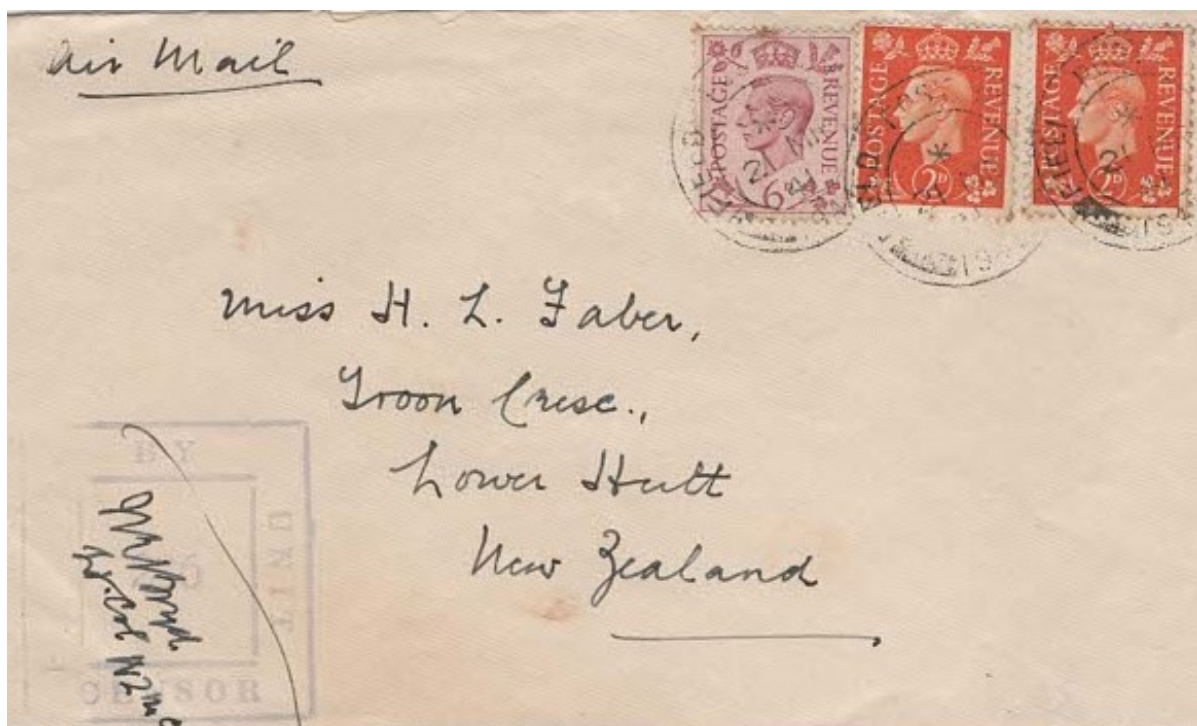 Air Mail
POSTAGE REVENUE 6
POSTAGE REVENUE 2D
POSTAGE REVENUE 2D
Miss H. L. Faber,
Troon Cresc.,
Lower Hutt
New Zealand
BY
UNIT
CENSOR
Lt. Col